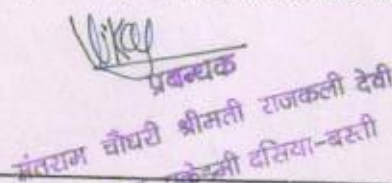 Vikay
प्रबन्धक
मंतराम चौधरी श्रीमती राजकली देवी
एकेडमी दसिया-बस्ती